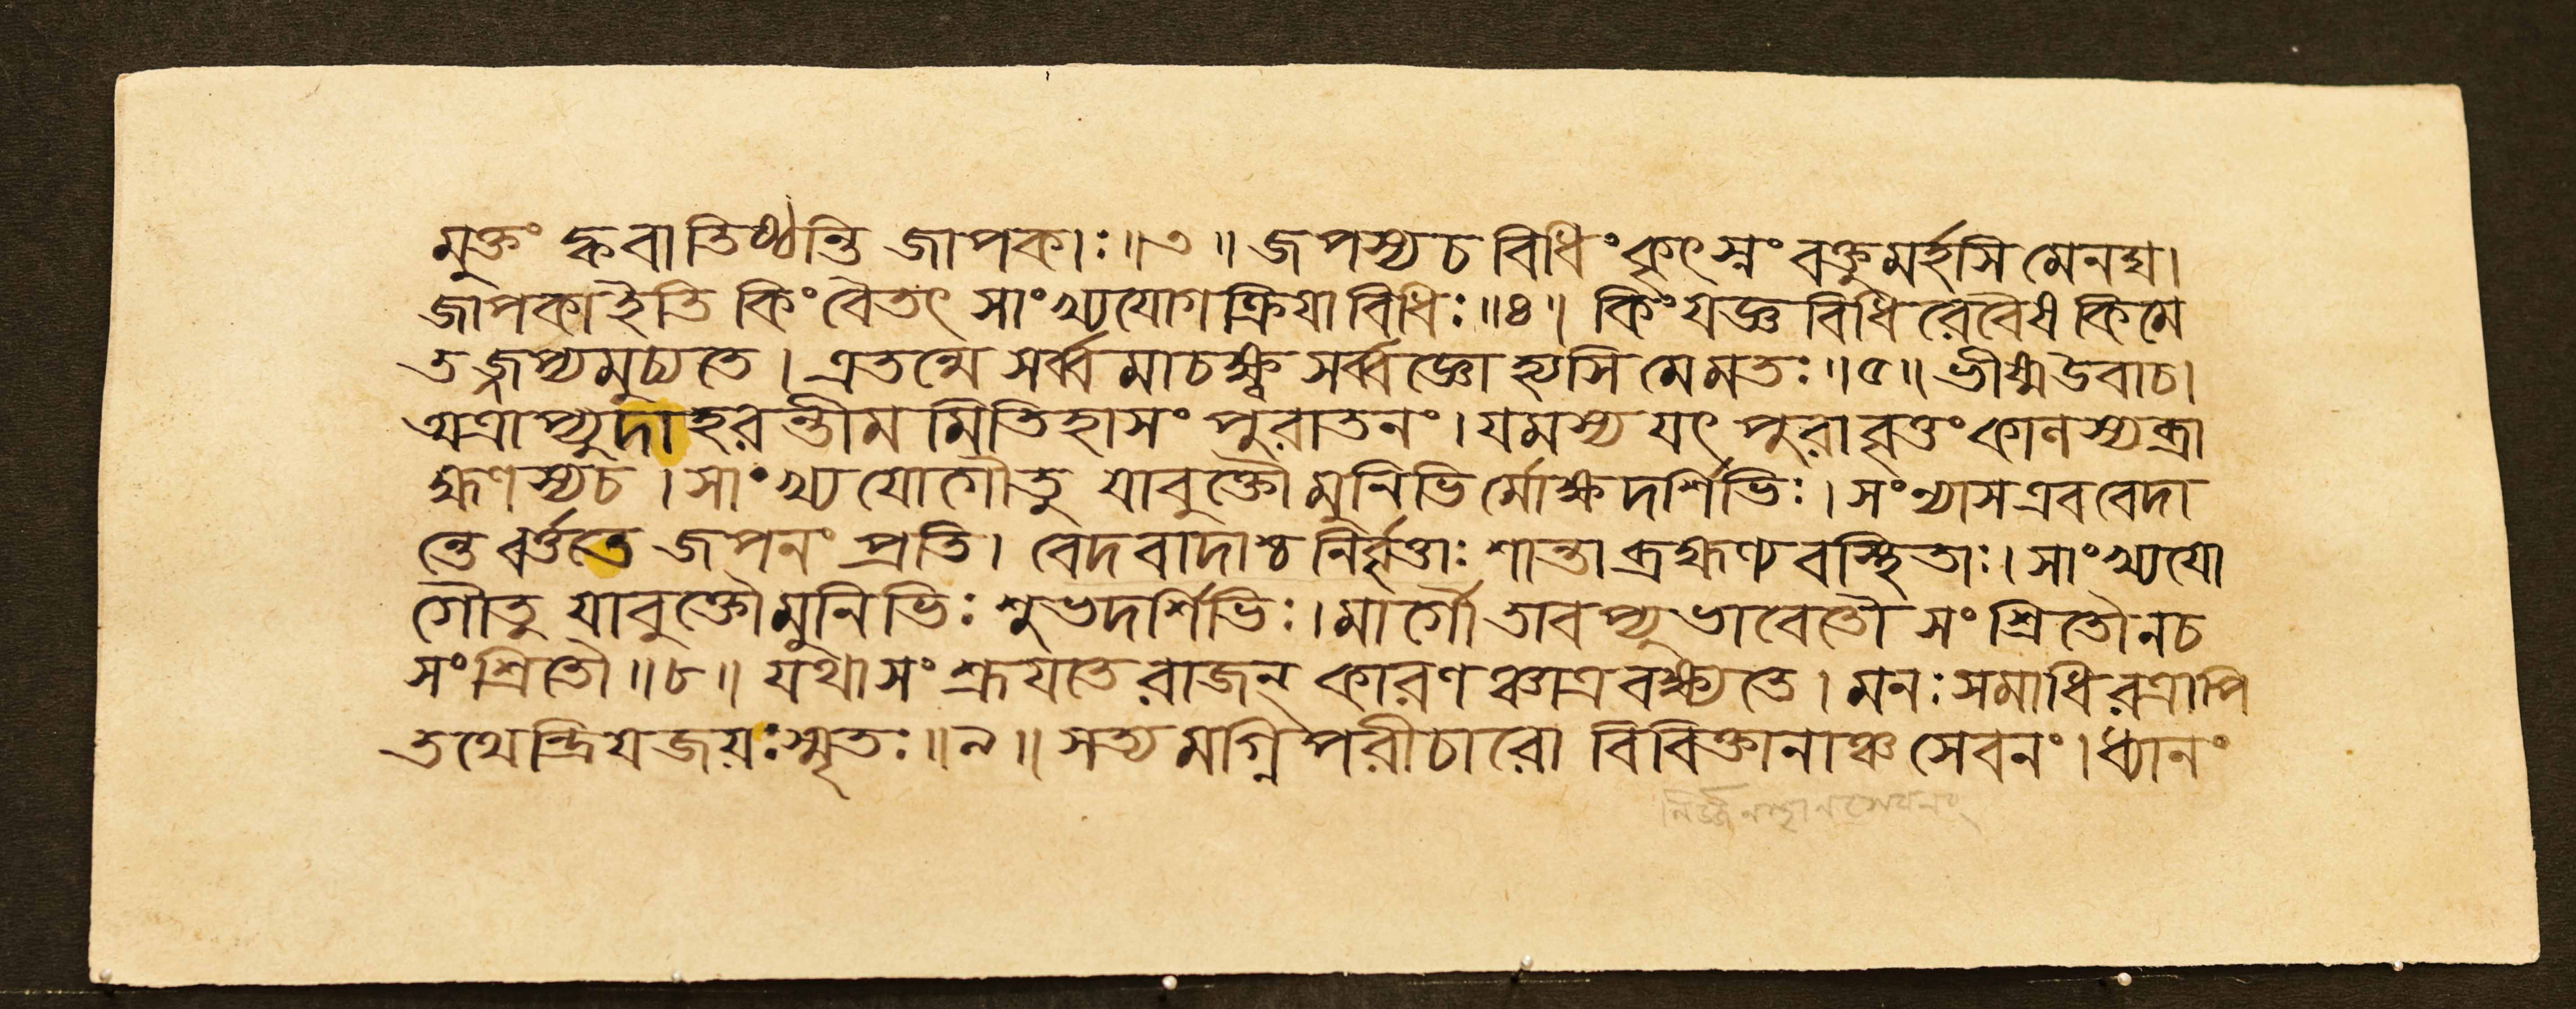 মুক্তং ক্ববাতিষ্ঠন্তি জাপকাঃ॥৩॥ জপস্যচ বিধিং কৃৎস্নং বক্তুমর্হসি মেনঘ।
জাপকাইতি কিং বৈতৎ সাংখ্যযোগক্রিযাবিধিঃ॥৪॥ কিং যজ্ঞ বিধিরেবৈষ কিমে
তজ্জপ্যমুচ্যতে। এতন্মে সর্ব্বমাচক্ষ্ব সর্ব্বজ্ঞো হ্যসি মেমতঃ॥৫॥ ভীষ্মউবাচ।
অত্রাপ্যুদাহরন্তীমমিতিহাসং পুরাতনং। যমস্য যৎ পুরাবৃত্তং কালস্যব্রা
হ্মণস্যচ। সাংখ্য যোগৌতু যাবুক্তৌ মুনিভির্মোক্ষদর্শিভিঃ। সংন্যাসএববেদা
ন্তে বর্ত্ততে জপনং প্রতি। বেদবাদাশ্চ নির্বৃত্তাঃ শান্তাব্রহ্মণ্যবস্থিতাঃ। সাংখ্যযো
গৌতু যাবুক্তৌমুনিভিঃ শুভদর্শিভিঃ। মার্গৌ তাবপ্যুভাবেতৌ সংশ্রিতৌনচ
সংশ্রিতৌ॥৮॥ যথাসংশ্রূযতে রাজন্ কারণঞ্চাত্রবক্ষ্যতে। মনঃসমাধিরত্রাপি
তথেন্দ্রিযজয়ঃস্মৃতঃ॥৯॥ সত্যমগ্নিপরীচারো বিবিক্তানাঞ্চ সেবনং। ধ্যানং
নির্জ্জনস্থানসেবনং